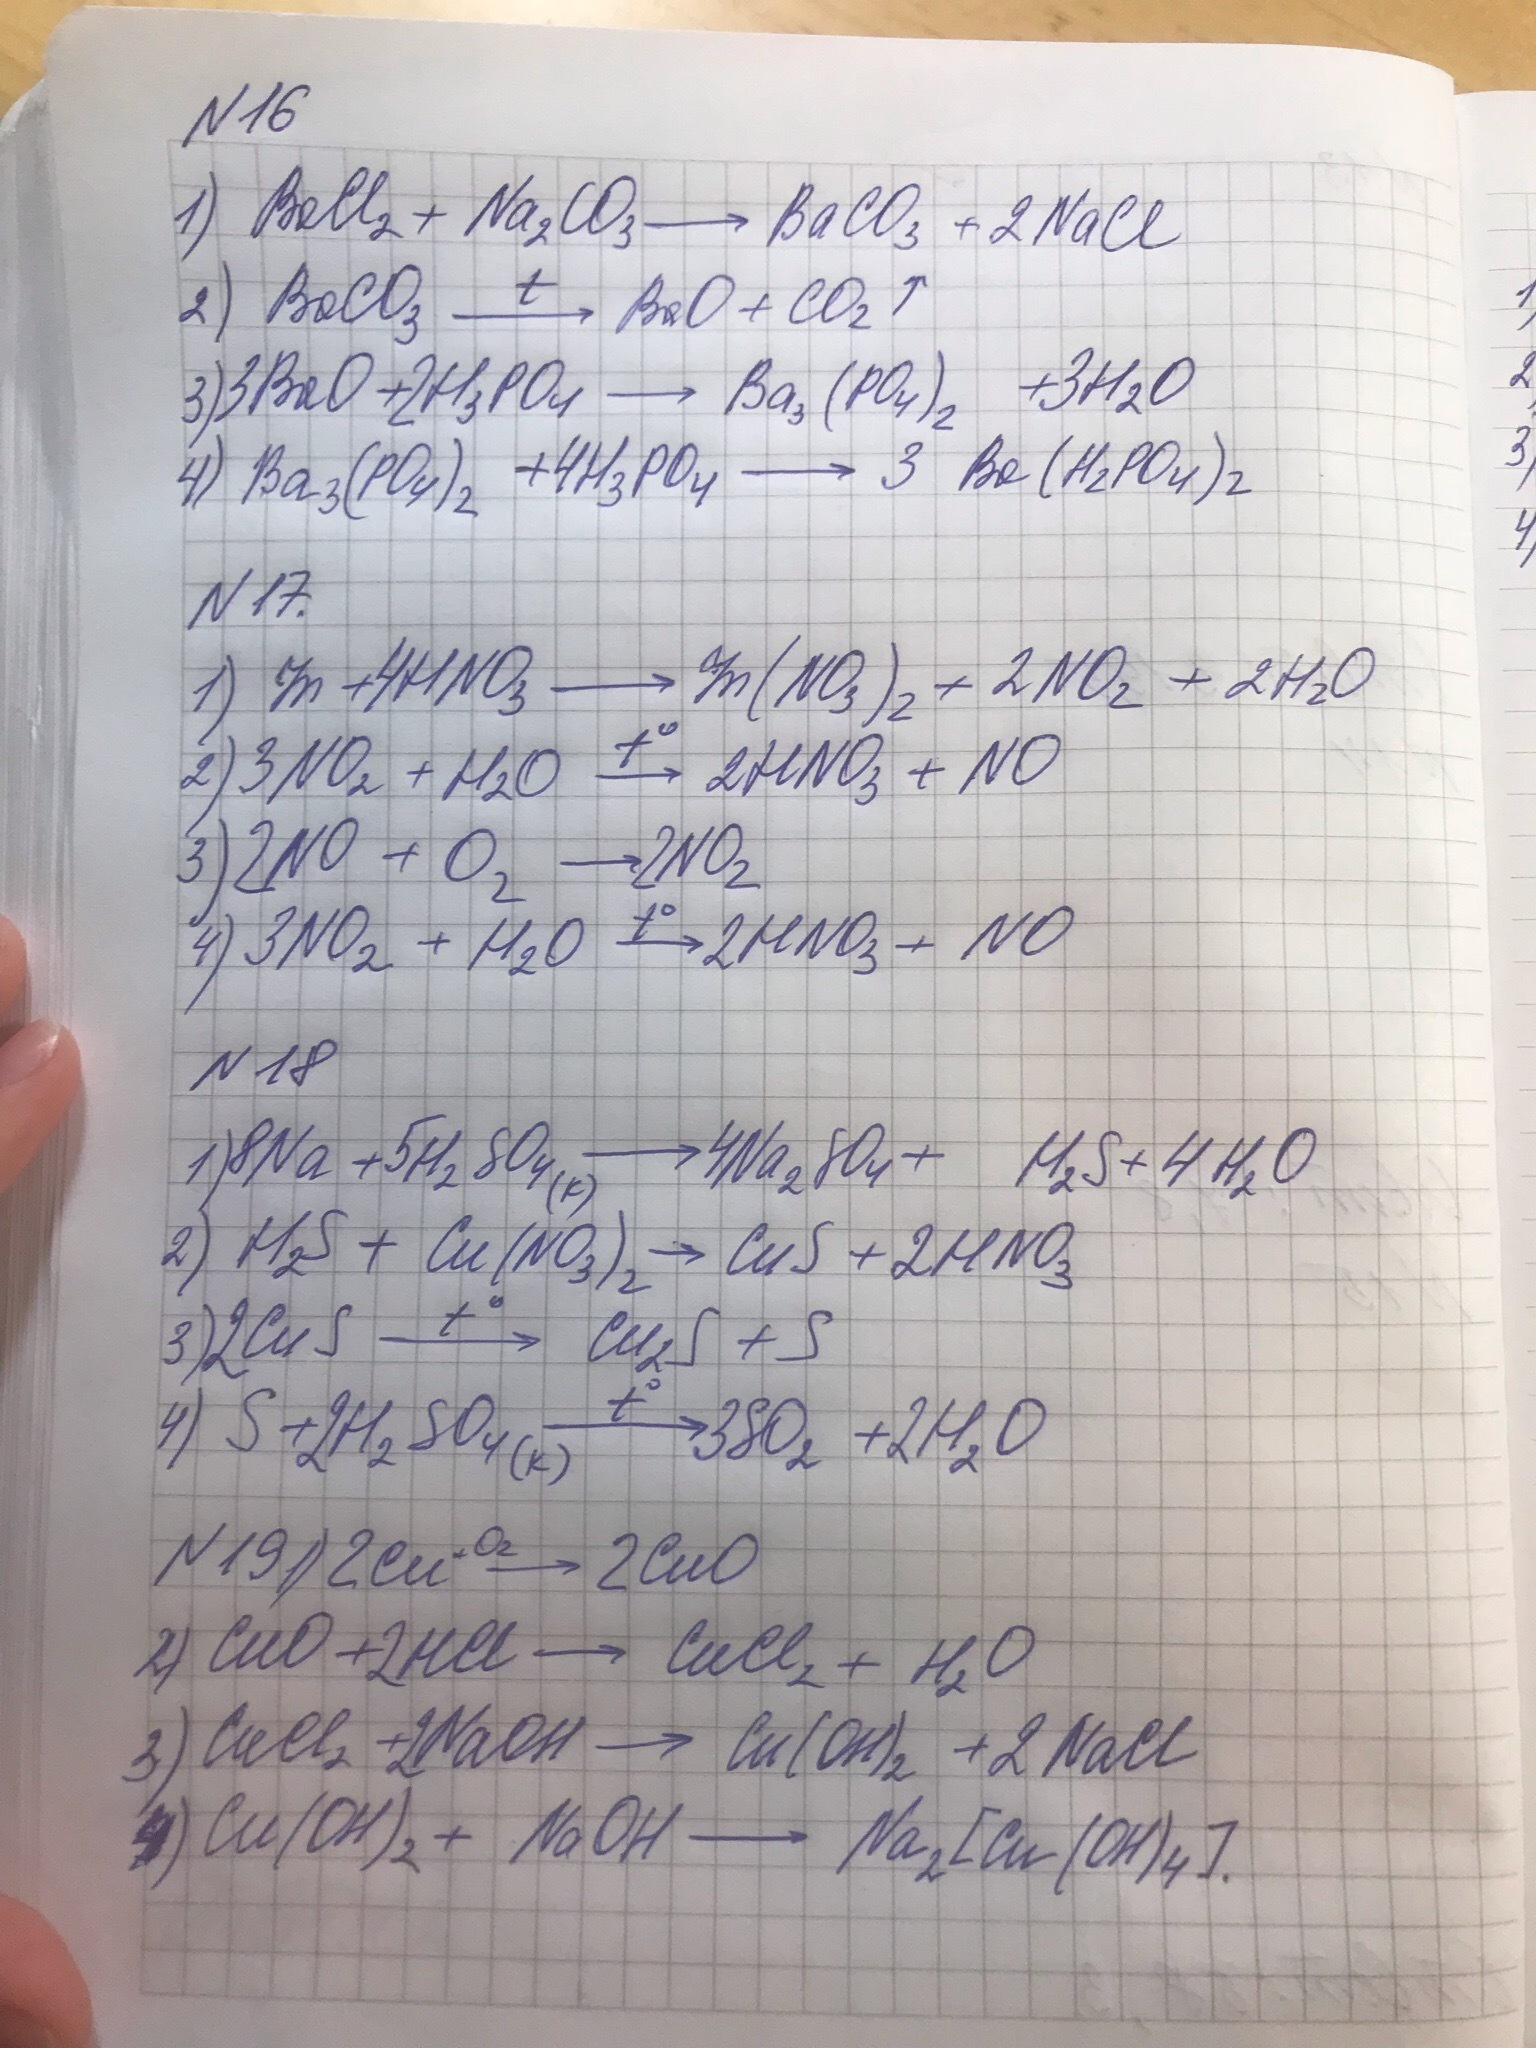 N16
1) BaCl2 + Na2CO3 ⟶ BaCO3 + 2NaCl
2) BaCO3 —t→ BaO + CO2↑
3) 3BaO + 2H3PO4 ⟶ Ba3(PO4)2 + 3H2O
4) Ba3(PO4)2 + 4H3PO4 ⟶ 3 Ba(H2PO4)2
N17.
1) Zn + 4HNO3 ⟶ Zn(NO3)2 + 2NO2 + 2H2O
2) 3NO2 + H2O —t°→ 2HNO3 + NO
3) 2NO + O2 ⟶ 2NO2
4) 3NO2 + H2O —t°→ 2HNO3 + NO
N18
1) 8Na + 5H2SO4(к) ⟶ 4Na2SO4 + H2S + 4H2O
2) H2S + Cu(NO3)2 → CuS + 2HNO3
3) 2CuS —t°→ Cu2S + S
4) S + 2H2SO4(к) —t°→ 3SO2 + 2H2O
N19 1) 2Cu + O2 ⟶ 2CuO
2) CuO + 2HCl ⟶ CuCl2 + H2O
3) CuCl2 + 2NaOH ⟶ Cu(OH)2 + 2NaCl
4) Cu(OH)2 + NaOH ⟶ Na2[Cu(OH)4].
1)
2)
3)
4)